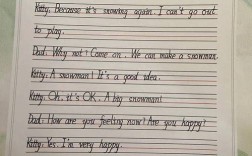 Kitty: Because it's snowing again. I can't go out
to play.
Dad: Why not? Come on. We can make a snowman.
Kitty: A snowman! It's a good idea.
Kitty: Oh, it's OK. A big snowman!
Dad: How are you feeling now? Are you happy?
Kitty: Yes. I'm very happy.